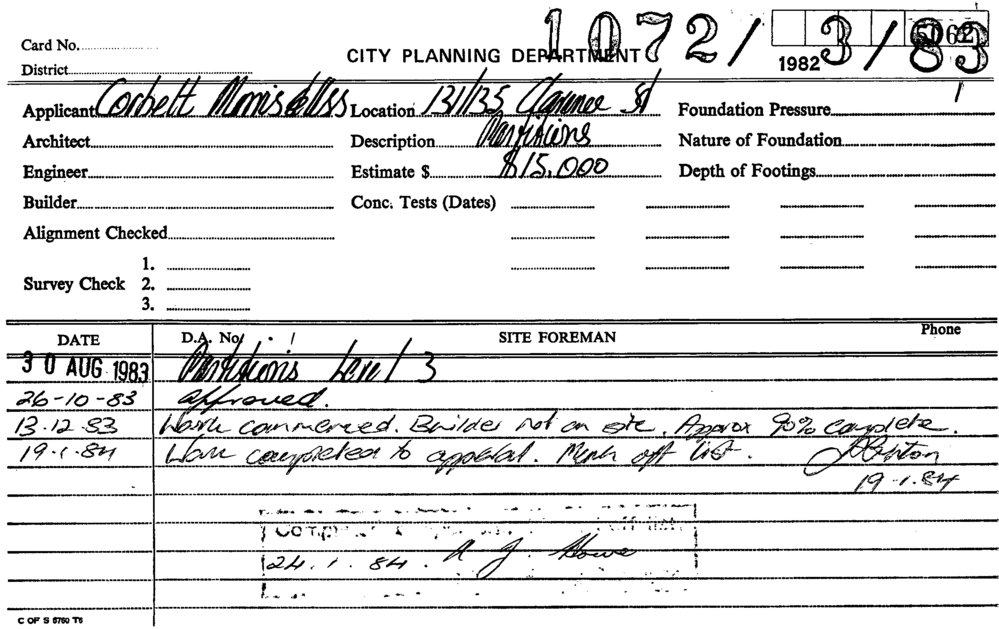 1072/3/83
Card No.
CITY PLANNING DEPARTMENT
1982
District
Applicant Corbett Morris & Location 131/135 Clarence St Foundation Pressure
Architect Description Partitions Nature of Foundation
Engineer Estimate $ $15,000 Depth of Footings
Builder Conc. Tests (Dates)
Alignment Checked
1.
Survey Check 2.
3.
DATE D.A. No. SITE FOREMAN Phone
30 AUG 1983 Partitions Level 3
26-10-83 approved.
13.12.83 Work commenced. Builder not on site. Approx 90% complete.
19.1.84 Work completed to approval. Mark off list.
19.1.84
off list
24.1.84. A J. Howe
C OF S 6760 T6